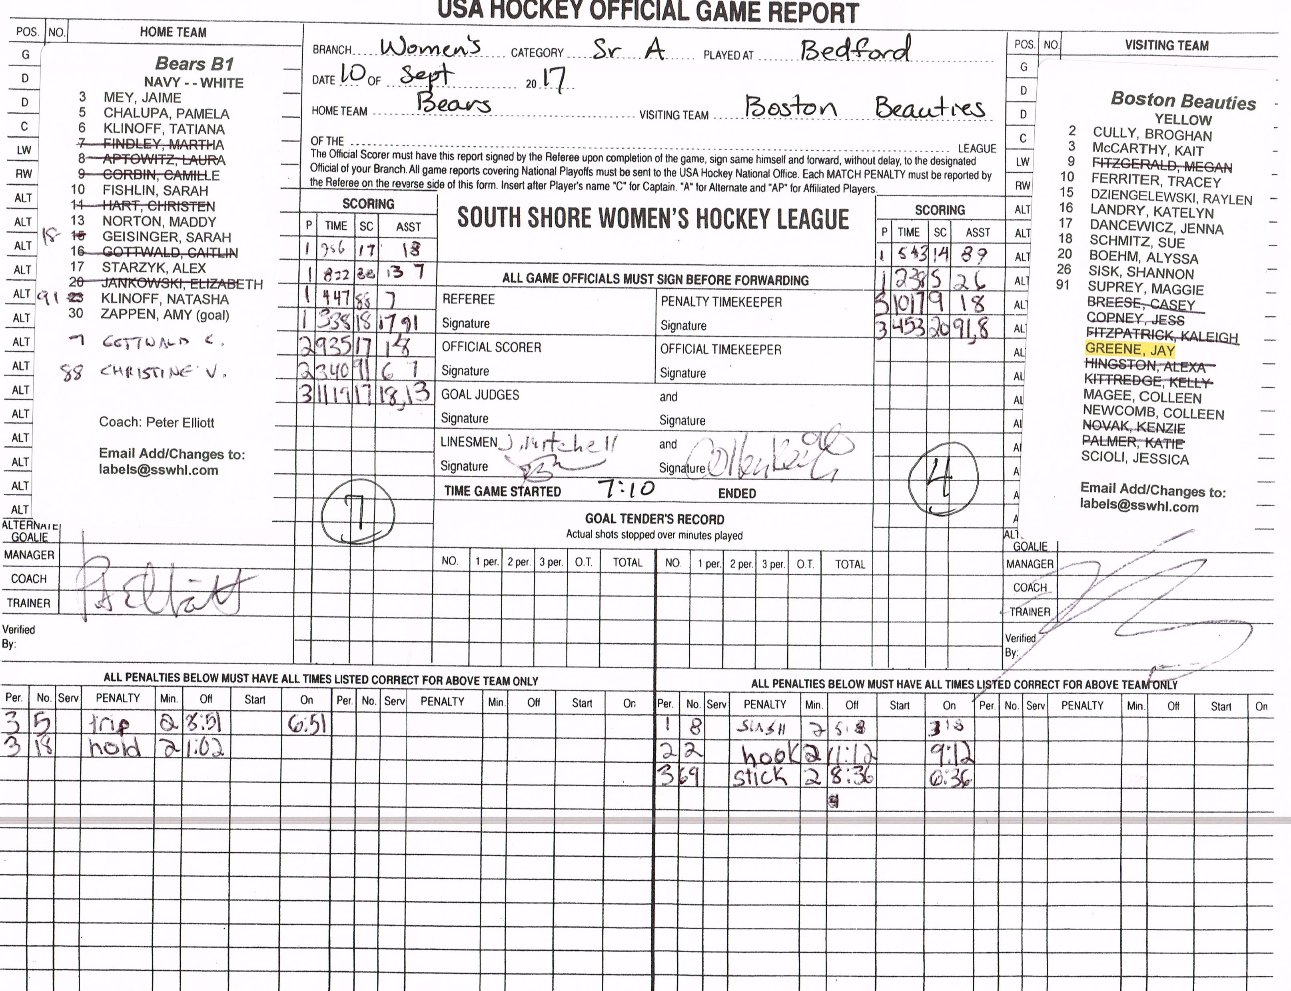 USA HOCKEY OFFICIAL GAME REPORT
POS. NO. HOME TEAM
G
D
D
C
LW
RW
ALT
ALT
ALT
ALT
ALT
ALT
ALT
ALT
ALT
ALT
ALT
ALT
ALT
ALT
ALTERNATE
GOALIE
MANAGER
COACH
TRAINER
Verified
By:
Bears B1
NAVY - - WHITE
3 MEY, JAIME
5 CHALUPA, PAMELA
6 KLINOFF, TATIANA
7 FINDLEY, MARTHA
8 APTOWITZ, LAURA
9 CORBIN, CAMILLE
10 FISHLIN, SARAH
11 HART, CHRISTEN
13 NORTON, MADDY
18 15 GEISINGER, SARAH
16 GOTTWALD, CAITLIN
17 STARZYK, ALEX
20 JANKOWSKI, ELIZABETH
91 23 KLINOFF, NATASHA
30 ZAPPEN, AMY (goal)
7 GOTTWALD C.
88 CHRISTINE V.
Coach: Peter Elliott
Email Add/Changes to:
labels@sswhl.com
BRANCH Women's CATEGORY Sr A PLAYED AT Bedford
DATE 10 OF Sept 2017
HOME TEAM Bears VISITING TEAM Boston Beauties
OF THE LEAGUE
The Official Scorer must have this report signed by the Referee upon completion of the game, sign same himself and forward, without delay, to the designated
Official of your Branch. All game reports covering National Playoffs must be sent to the USA Hockey National Office. Each MATCH PENALTY must be reported by
the Referee on the reverse side of this form. Insert after Player's name "C" for Captain. "A" for Alternate and "AP" for Affiliated Players.
SCORING
P TIME SC ASST
1 956 17 18
1 822 88 13 7
1 447 88 7
1 338 18 17 91
2 935 17 18
2 340 91 6 7
3 1119 17 18,13
7
SOUTH SHORE WOMEN'S HOCKEY LEAGUE
ALL GAME OFFICIALS MUST SIGN BEFORE FORWARDING
REFEREE PENALTY TIMEKEEPER
Signature Signature
OFFICIAL SCORER OFFICIAL TIMEKEEPER
Signature Signature
GOAL JUDGES and
Signature Signature
LINESMEN J. Mitchell and
Signature Signature
TIME GAME STARTED 7:10 ENDED
GOAL TENDER'S RECORD
Actual shots stopped over minutes played
NO. 1 per. 2 per. 3 per. O.T. TOTAL NO. 1 per. 2 per. 3 per. O.T. TOTAL
SCORING
P TIME SC ASST
1 543 14 89
1 238 5 26
3 1017 9 18
3 453 20 91,8
4
POS. NO. VISITING TEAM
G
D
D
C
LW
RW
ALT
ALT
ALT
GOALIE
MANAGER
COACH
TRAINER
Verified
By:
Boston Beauties
YELLOW
2 CULLY, BROGHAN
3 McCARTHY, KAIT
9 FITZGERALD, MEGAN
10 FERRITER, TRACEY
15 DZIENGELEWSKI, RAYLEN
16 LANDRY, KATELYN
17 DANCEWICZ, JENNA
18 SCHMITZ, SUE
20 BOEHM, ALYSSA
26 SISK, SHANNON
91 SUPREY, MAGGIE
BREESE, CASEY
COPNEY, JESS
FITZPATRICK, KALEIGH
GREENE, JAY
HINGSTON, ALEXA
KITTREDGE, KELLY
MAGEE, COLLEEN
NEWCOMB, COLLEEN
NOVAK, KENZIE
PALMER, KATIE
SCIOLI, JESSICA
Email Add/Changes to:
labels@sswhl.com
ALL PENALTIES BELOW MUST HAVE ALL TIMES LISTED CORRECT FOR ABOVE TEAM ONLY
Per. No. Serv PENALTY Min. Off Start On Per. No. Serv PENALTY Min. Off Start On
3 5 trip 2 8:51 6:51
3 18 hold 2 1:02
ALL PENALTIES BELOW MUST HAVE ALL TIMES LISTED CORRECT FOR ABOVE TEAM ONLY
Per. No. Serv PENALTY Min. Off Start On Per. No. Serv PENALTY Min. Off Start On
1 8 SLASH 2 5:18 3:18
2 2 hook 2 11:12 9:12
3 69 stick 2 8:36 6:36